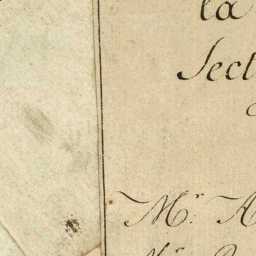 la
Sect
Mr. A